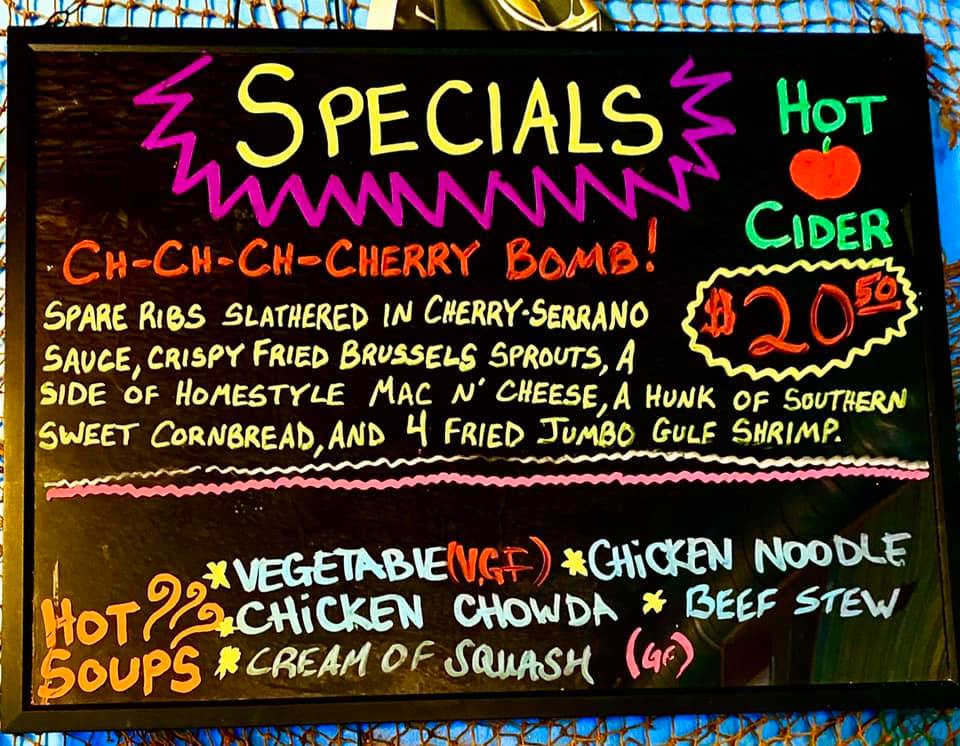 SPECIALS
HOT
CIDER
CH-CH-CH-CHERRY BOMB!
$20.50
SPARE RIBS SLATHERED IN CHERRY-SERRANO
SAUCE, CRISPY FRIED BRUSSELS SPROUTS, A
SIDE OF HOMESTYLE MAC N' CHEESE, A HUNK OF SOUTHERN
SWEET CORNBREAD, AND 4 FRIED JUMBO GULF SHRIMP.
HOT
SOUPS
*VEGETABLE (V,GF) *CHICKEN NOODLE
*CHICKEN CHOWDA * BEEF STEW
*CREAM OF SQUASH (GF)